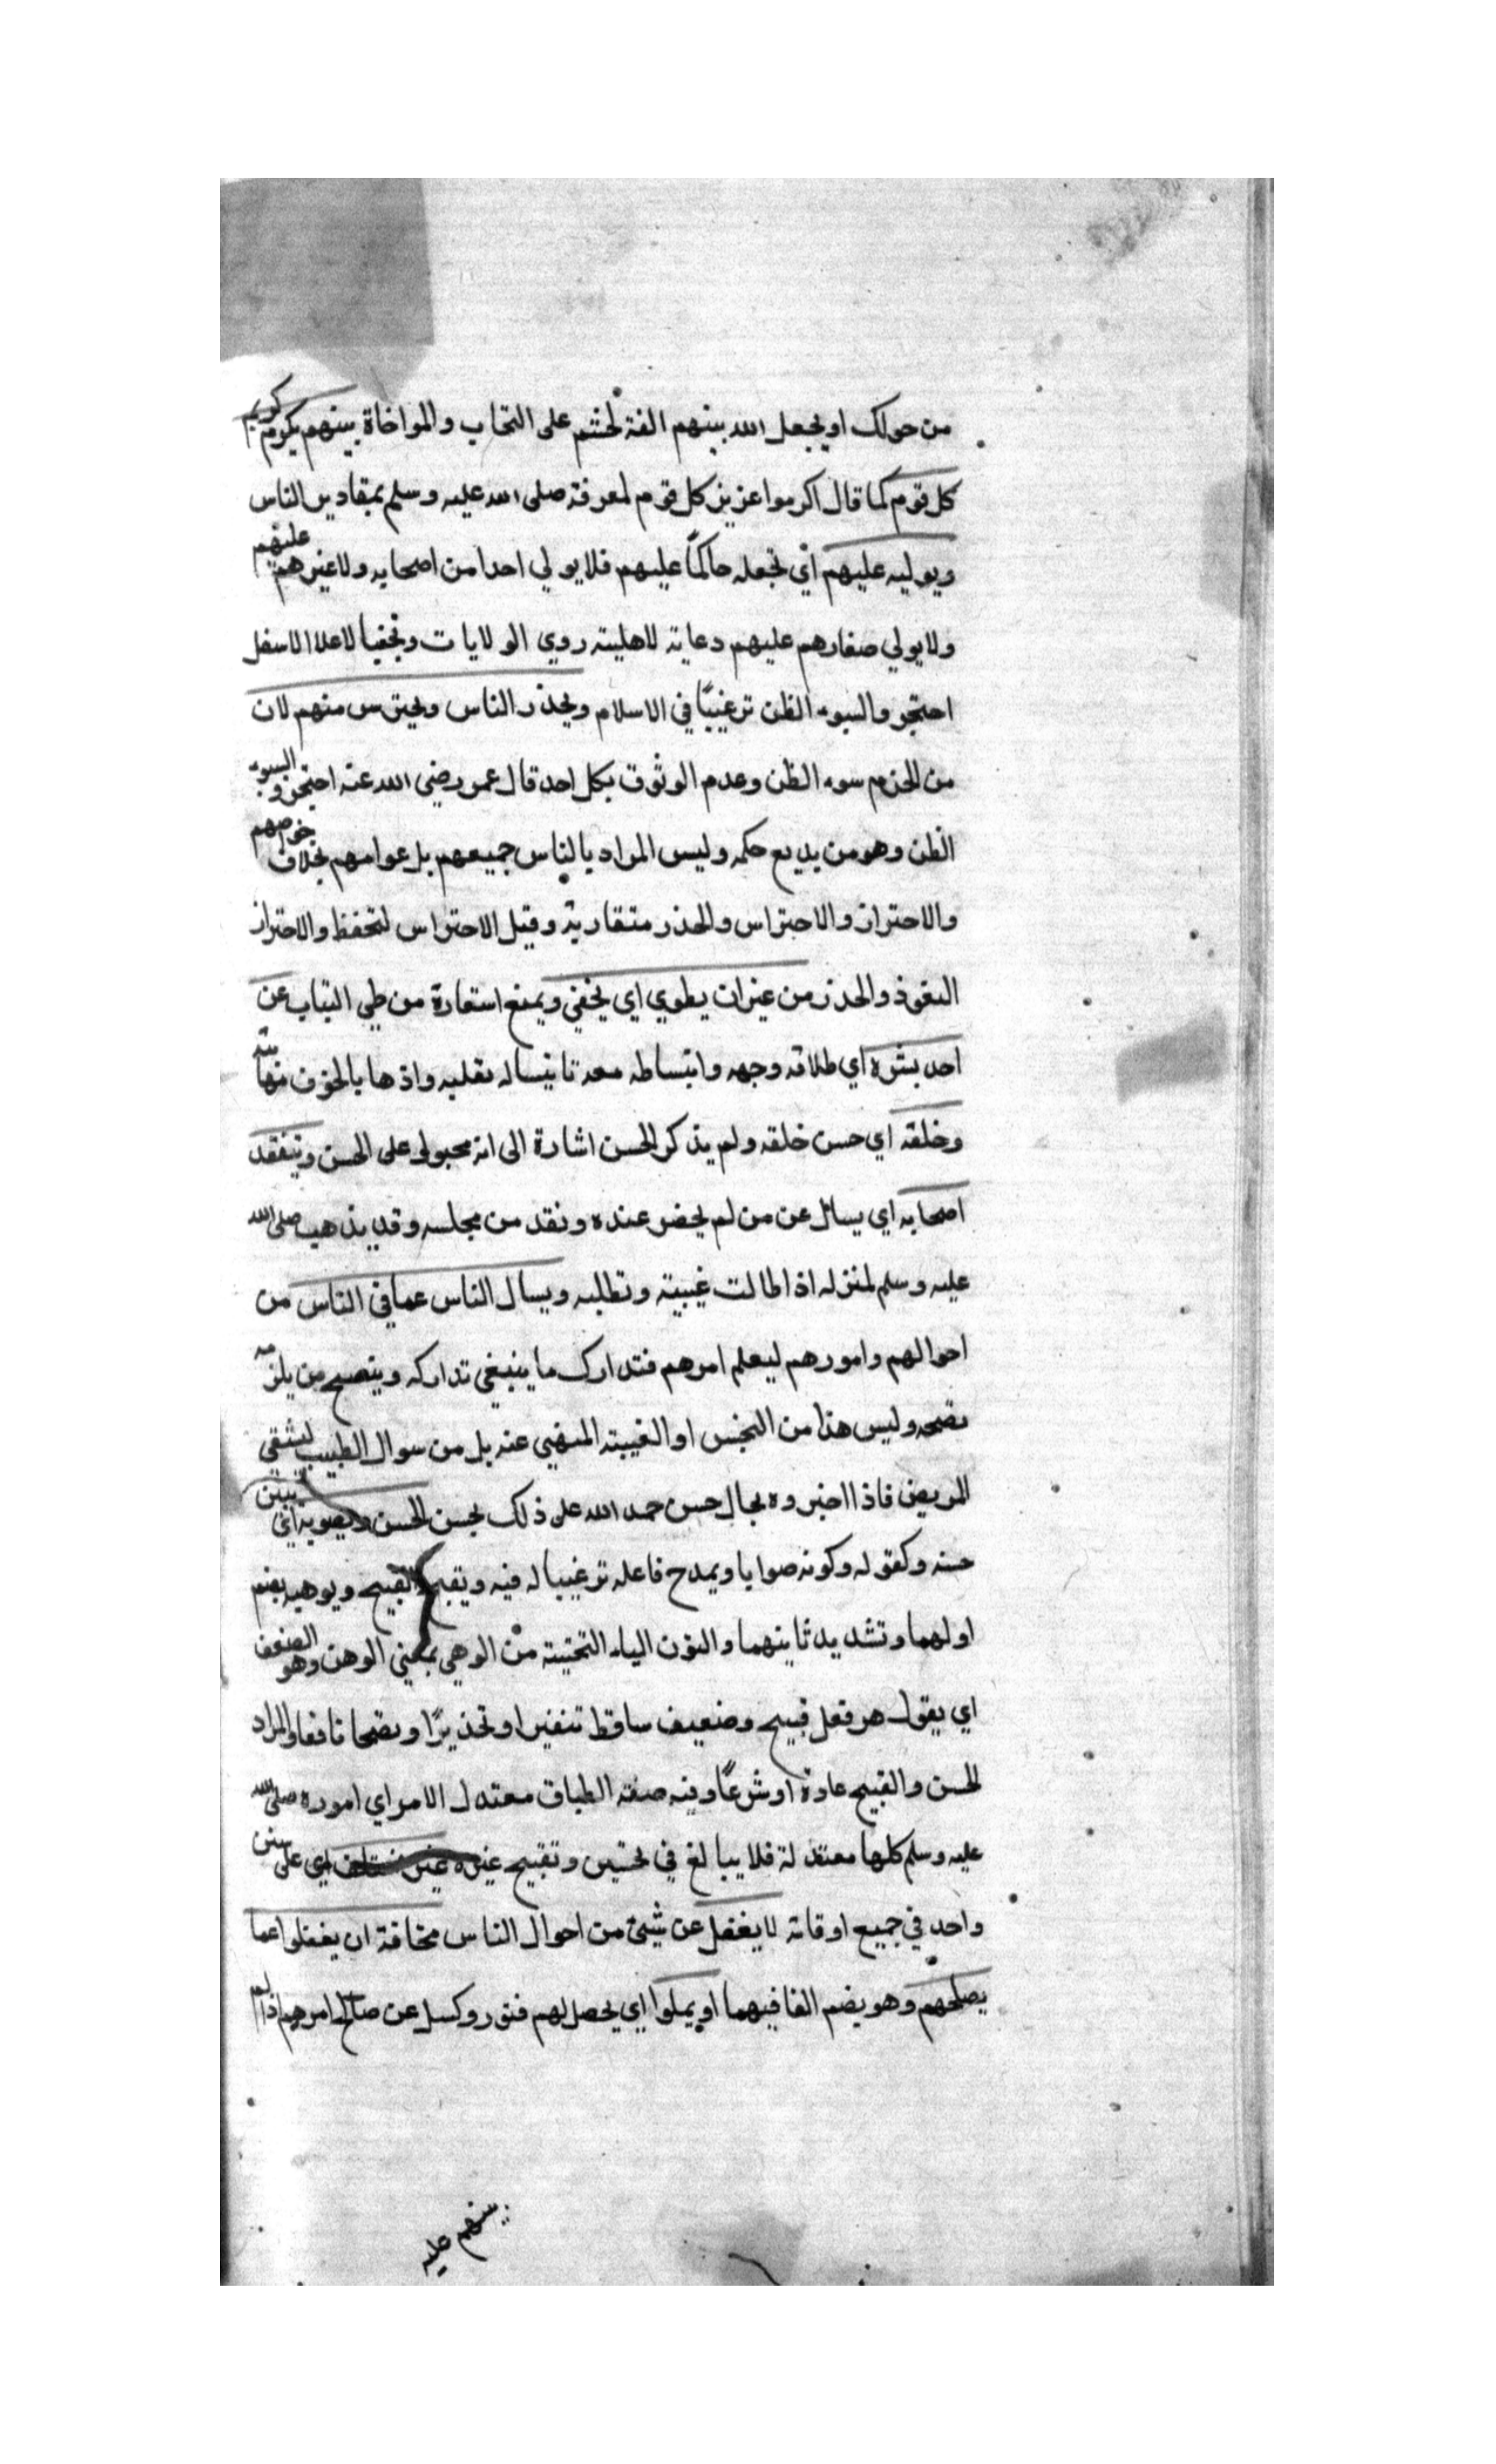 من حولك او يجعل الله بينهم الفة لحثهم على التحاب والمواخاة بينهم يكرم كريم
كل قوم كما قال اكرموا عزيز كل قوم لمعرفة صلى الله عليه وسلم بمقادير الناس
ويوليه عليهم اي يجعله حاكمًا عليهم فلا يولي احدا من اصحابه ولا غيرهم عليهم
ولا يولي صغارهم عليهم دعاية لاهليته روي الولايات وتجنبا لاعلا الاسفل
احتجروا لسوء الظن ترغيبًا في الاسلام ويحذر الناس ويحترس منهم لان
من الحزم سوء الظن وعدم الوثوق بكل احد قال عمر رضي الله عنه احتجروا بسوء
الظن وهو من بديع حكمه وليس المراد بالناس جميعهم بل عوامهم بخلاف خواصهم
والاحتراز والاحتراس والحذر متقاربة وقيل الاحتراس لتحفظ والاحتراز
التعوذ والحذر من غير ان يطوي اي يخفي ويمنع استعارة من طي الثياب عن
احد بشره اي طلاقة وجهه وانبساطه معه تانيسا له بقلبه واذهابا لخوف منها
وخلقه اي حسن خلقه ولم يذكر الحسن اشارة الى انه مجبول على الحسن ويتفقد
اصحابه اي يسال عن من لم يحضر عنده وفقد من مجلسه وقد يذهب صلى الله
عليه وسلم لمنزله اذا طالت غيبته وتطلبه ويسال الناس عما في الناس من
احوالهم وامورهم ليعلم امرهم فتدارك ما ينبغي تداركه وينصح من يلزمه
نصحه وليس هذا من التجسس او الغيبة المنهي عنه بل من سوال الطبيب ليشفي
المريض فاذا اخبروه بحال حسن حمد الله على ذلك يحسن الحسن ويصوبه اي يبين
حسنه وكقوله وكونه صوابا ويمدح فاعله ترغيبا له فيه ويقبح القبيح ويوهيه بضم
اولهما وتشديد ثانيهما والنون الياء التحتية من الوهي بمعني الوهن وهو الضعف
اي يقول هو فعل قبيح وضعيف ساقط تنفيرا وتحذيرًا ونصحا نافعا والمراد
الحسن والقبيح عادة او شرعًا وفيه صنعة الطباق معتدل الامر اي اموره صلى الله
عليه وسلم كلها معتدلة فلا يبالغ في تحسين وتقبيح غيره غير مختلف اي على سنن
واحد في جميع اوقاته لا يغفل عن شيئ من احوال الناس مخافة ان يغفلوا عما
يصلحهم وهو بضم الفا فيهما او يملوا اي يحصل لهم فتور وكسل عن صالح امرهم اذا لم
ينبههم عليه